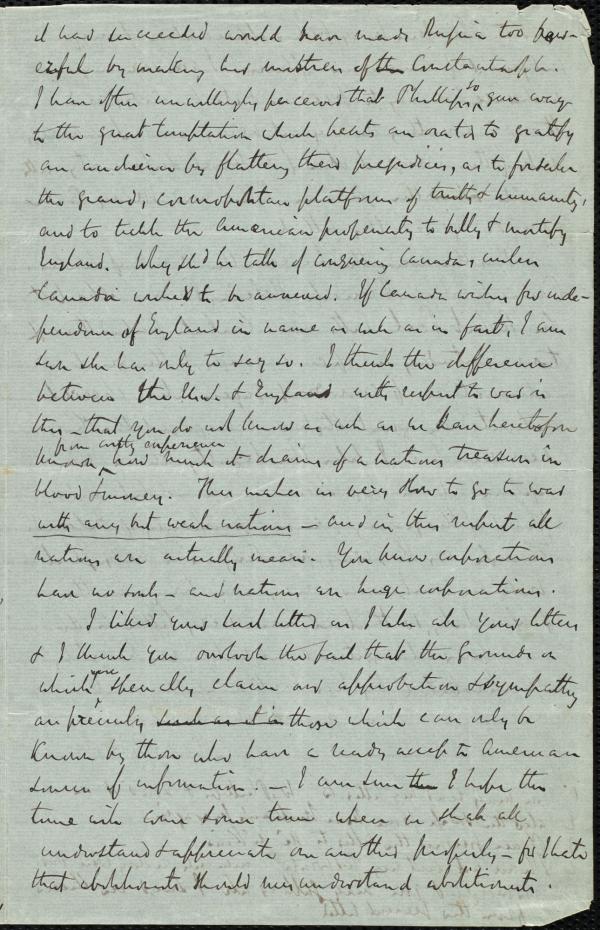 it had succeeded would have made Russia too pow-
erful by making her mistress of the Constantinople.
I have often unwillingly perceived that Phillips so gave way
to the great temptation which besets an orator to gratify
an audience by flattering their prejudices, as to forsake
the grand, cosmopolitan platform of truth & humanity,
and to tickle the American propensity to bully & mortify
England. Why shd he talk of conquering Canada, unless
Canada wished to be annexed. If Canada wishes for inde-
pendence of England in name as well as in fact, I am
sure she has only to say so. I think the difference
between the U.S. & England with respect to war is
this - that you do not know as well as we have heretofore
known from costly experience how much it drains of a nations treasure in
blood & money. This makes us very slow to go to war
with any but weak nations - and in this respect all
nations are actually mean. You know corporations
have no souls - and nations are huge corporations.
I liked your last letter as I like all your letters
& I think you overlook the fact that the grounds on
which you specially claim our approbation & sympathy
are precisely such as it is those which can only be
known by those who have a ready access to American
sources of information. - I am sure the I hope the
time will come some time when we shall all
understand & appreciate one another properly - for I hate
that abolitionists should misunderstand abolitionists.